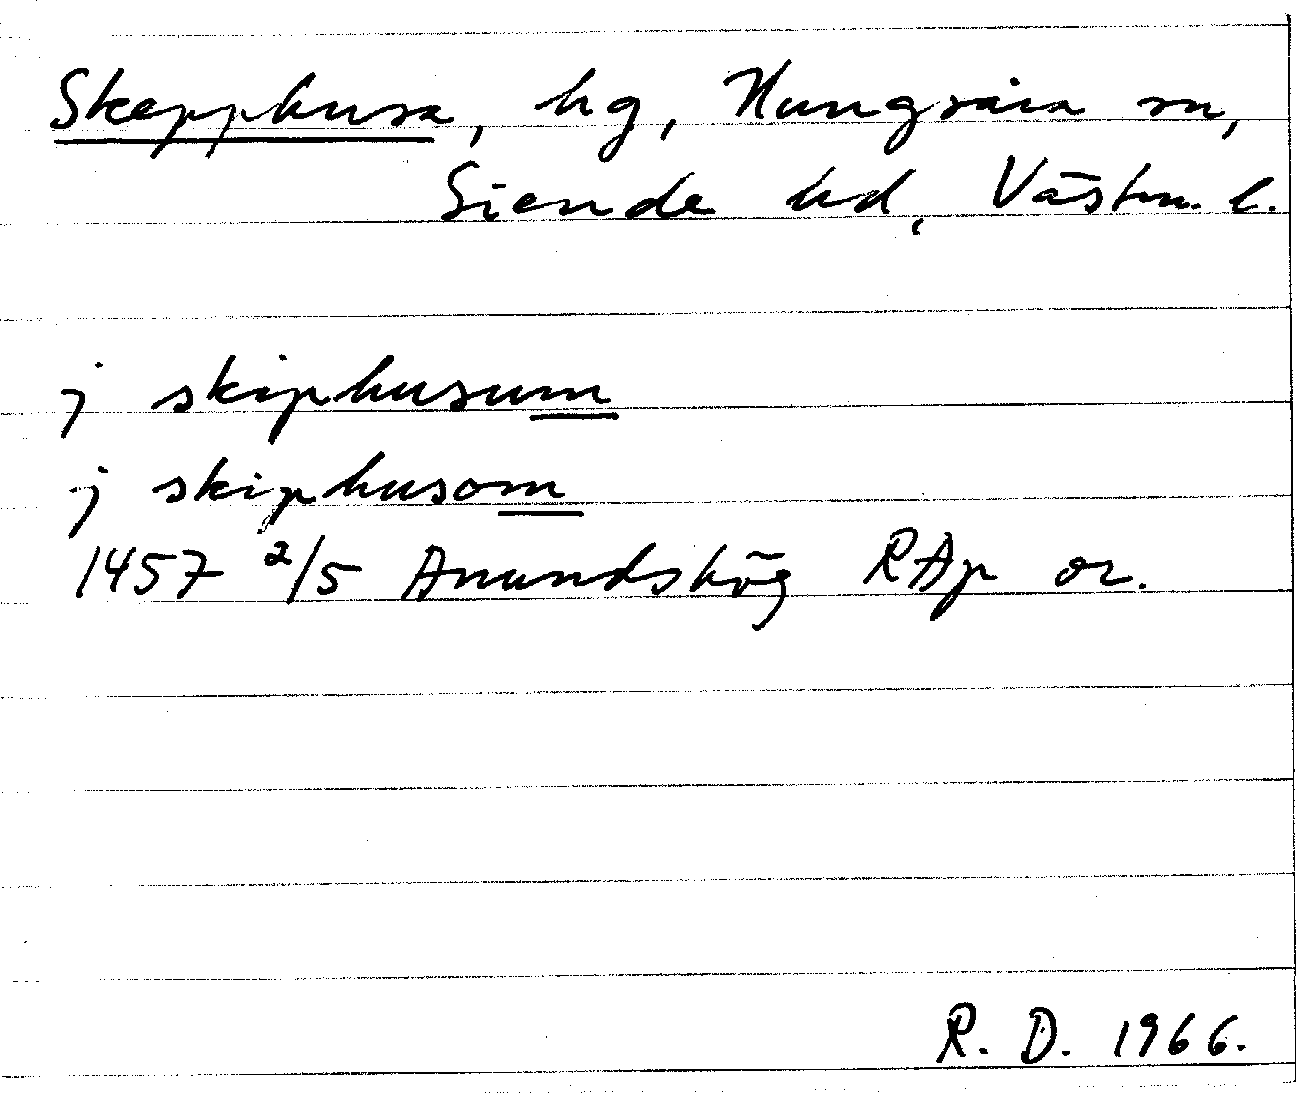 Skepphusa, hg, Hungsåra sn,
Siende hd, Västm. l.
j skiphusum
j skiphusom
1457 2/5 Anundshög RAp or.
R. D. 1966.